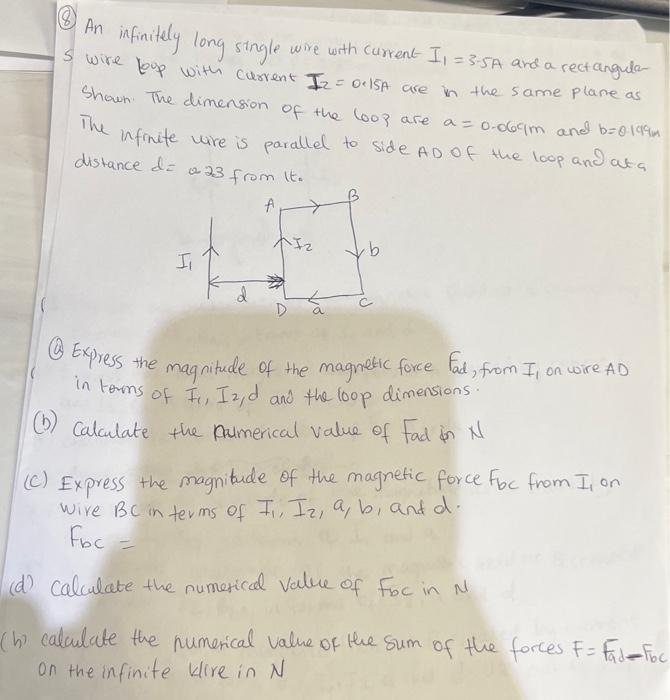 ⑧ An infinitely long single wire with current I₁ = 3.5A and a rectangular
s wire loop with current I₂ = 0.15A are in the same plane as
shown. The dimension of the loop are a = 0.069m and b=0.199m
The infinite wire is parallel to side AD of the loop and at a
distance d = 0.23 from it.
A B
I₁ I₂ b
d D a C
ⓐ Express the magnitude of the magnetic force Fad, from I₁ on wire AD
in terms of I₁, I2, d and the loop dimensions.
(b) Calculate the numerical value of Fad in N
(c) Express the magnitude of the magnetic force Fbc from I₁ on
wire BC in terms of I₁, I2, a, b, and d.
Fbc =
(d) calculate the numerical value of Fbc in N
(h) calculate the numerical value of the sum of the forces F = Fad-Fbc
on the infinite wire in N